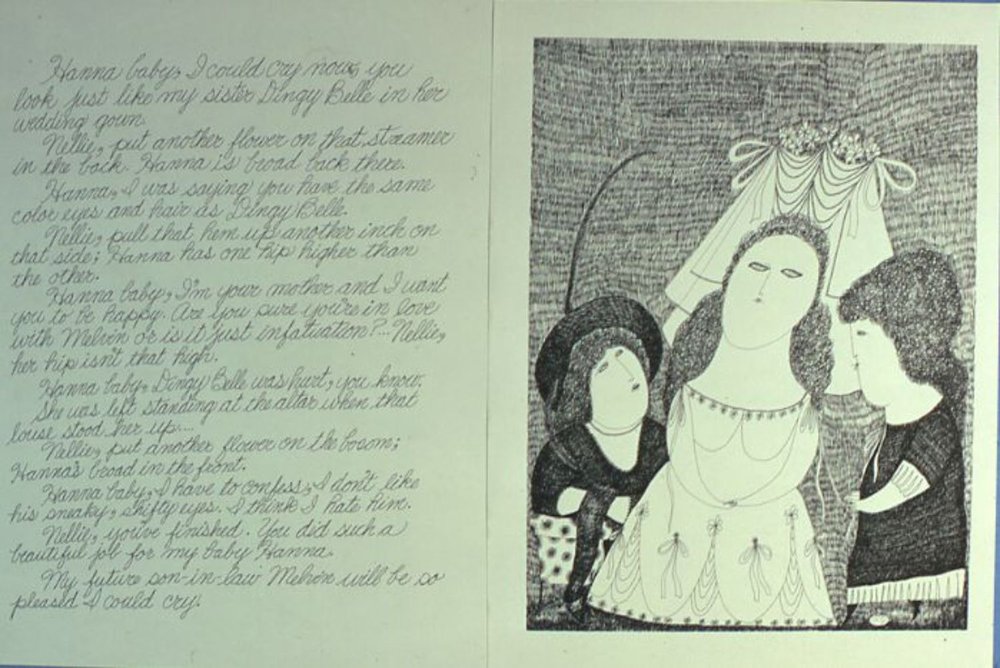 Hanna baby, I could cry now, you
look just like my sister Dingy Belle in her
wedding gown.
Nellie, put another flower on that streamer
in the back. Hanna is broad back there.
Hanna, I was saying you have the same
color eyes and hair as Dingy Belle.
Nellie, pull that hem up another inch on
that side; Hanna has one hip higher than
the other.
Hanna baby, I'm your mother and I want
you to be happy. Are you sure you're in love
with Melvin or is it just infatuation?... Nellie,
her hip isn't that high.
Hanna baby, Dingy Belle was hurt, you know.
She was left standing at the altar when that
louse stood her up....
Nellie, put another flower on the bosom;
Hanna's broad in the front.
Hanna baby, I have to confess, I don't like
his sneaky, shifty eyes. I think I hate him.
Nellie, you've finished. You did such a
beautiful job for my baby Hanna.
My future son-in-law Melvin will be so
pleased I could cry.